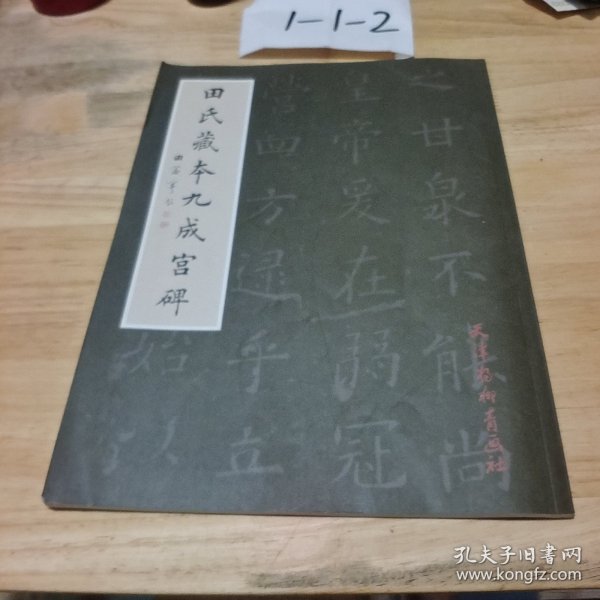 1-1-2
田氏藏本九成宫碑
之甘泉不能尚
皇帝爰在弱冠
营四方逮乎立
始以
天津杨柳青画社
孔夫子旧书网
www.kongfz.com